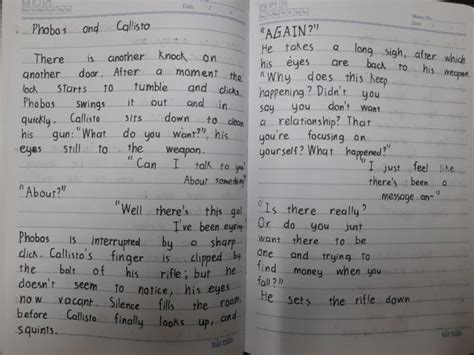 Phobos and Callisto
There is another knock on
another door. After a moment the
lock starts to tumble and clicks.
Phobos swings it out and in
quickly. Callisto sits down to clean
his gun: "What do you want?", his
eyes still to the weapon.
"Can I talk to you
About something?
"About?"
"Well there's this gal
I've been eyeing
Phobos is interrupted by a sharp
click. Callisto's finger is clipped by
the bolt of his rifle; but he
doesn't seem to notice; his eyes
now vacant. Silence fills the room,
before Callisto finally looks up, and
squints.
HẢI TIẾN
"AGAIN?"
He takes a long sigh, after which
his eyes are back to his weapon.
"Why does this keep
happening? Didn't you
say you don't want
a relationship? That
you're focusing on
yourself? What happened?"
"I just feel like
there's been a
message on-"
"Is there really?
Or do you just
want there to be
one and trying to
find money when you
fall?"
He sets the rifle down
HẢI TIẾN